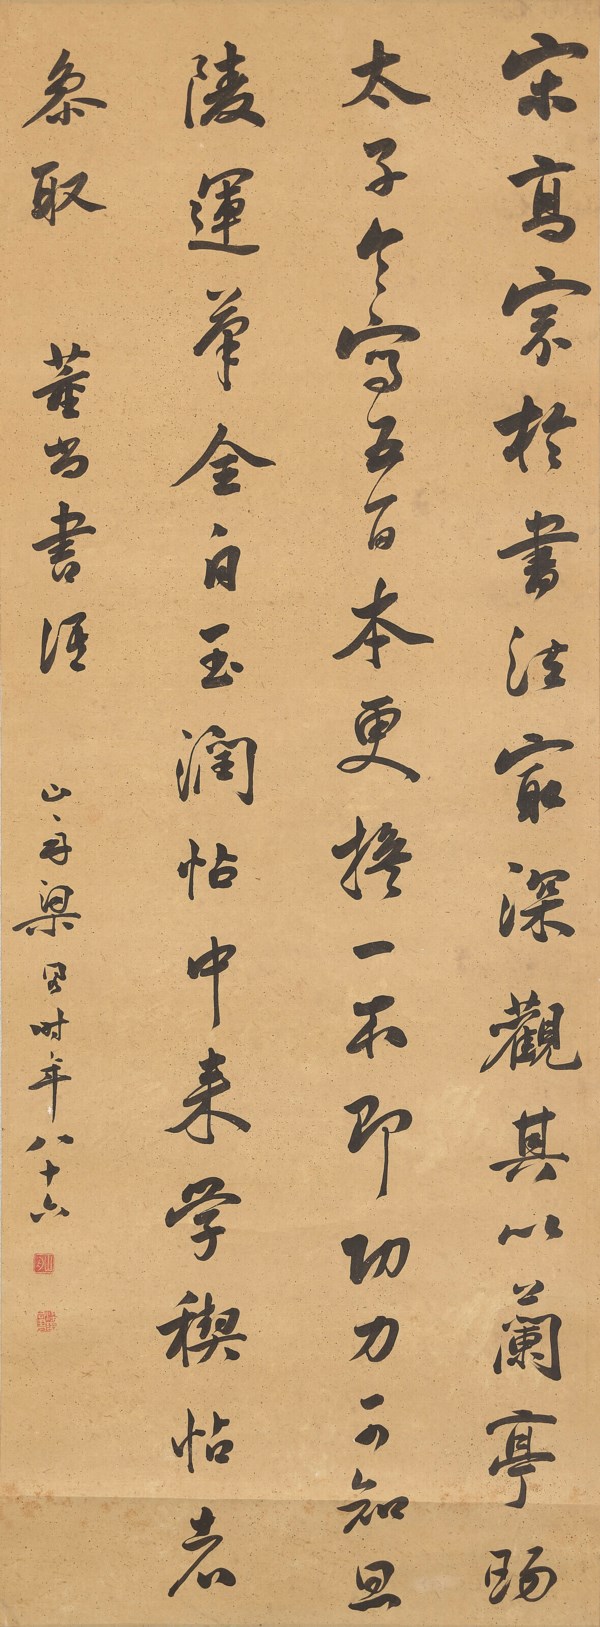 宋高宗於書法最深觀其以蘭亭賜
太子令寫五百本更換一本即功力可知思
陵運筆全自玉潤帖中来学稧帖者
叅取 董尚書語 山舟梁同書時年八十六